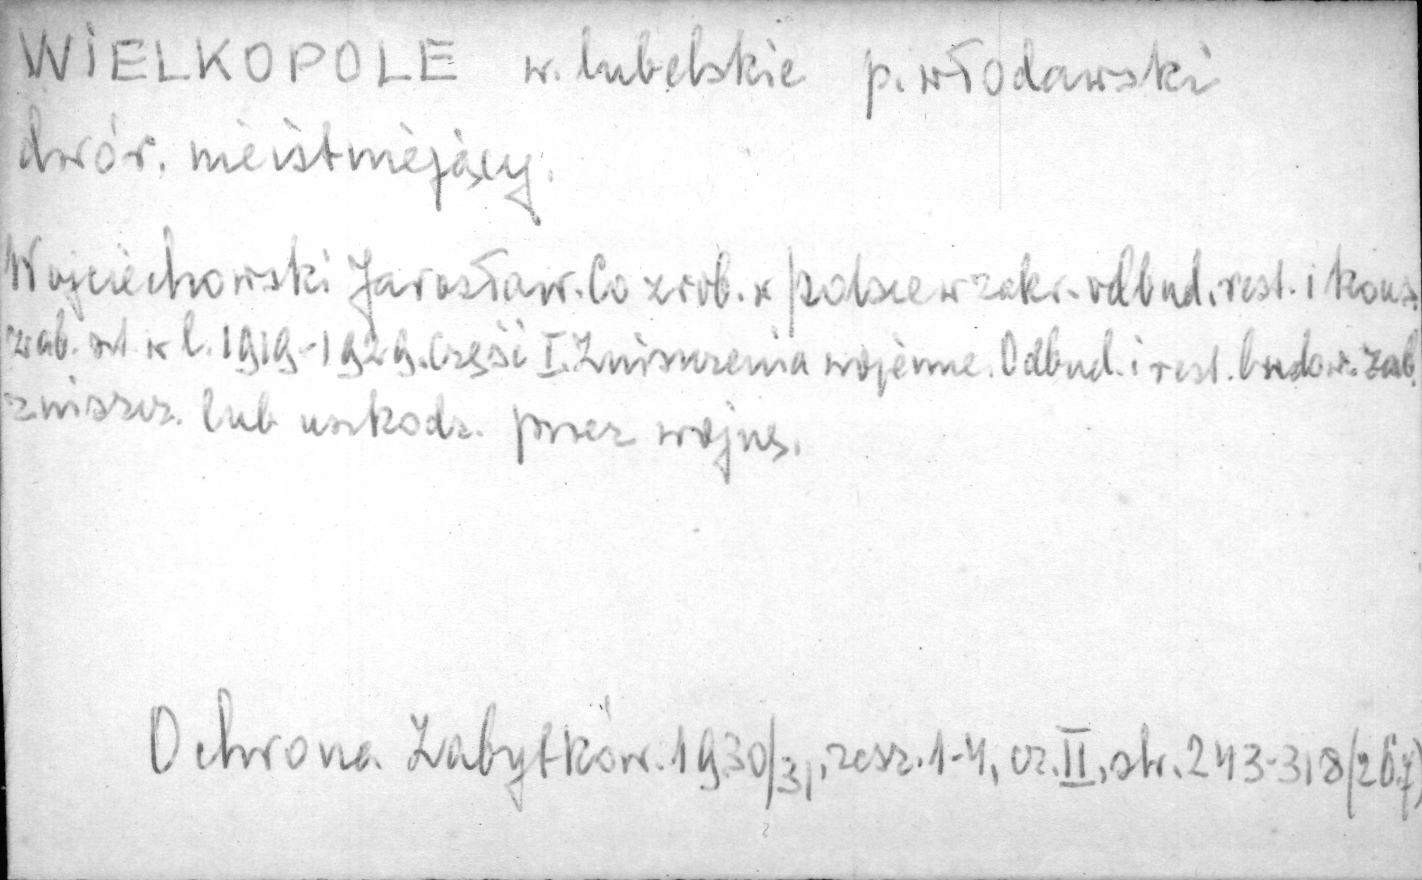 WIELKOPOLE w. lubelskie p. włodawski
dwór, nieistniejący.
Wojciechowski Jarosław. Co zrob. w Polsce w zakr. odbud. rest. i kons.
zab. szt. w l. 1919-1929. Część I. Zniszczenia wojenne. Odbud. i rest. budow. zab.
zniszcz. lub uszkodz. przez wojnę.
Ochrona Zabytków. 1930/31, zesz. 1-4, cz. II, str. 243-318 (267)